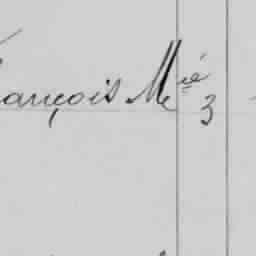 ançois M^ié 3